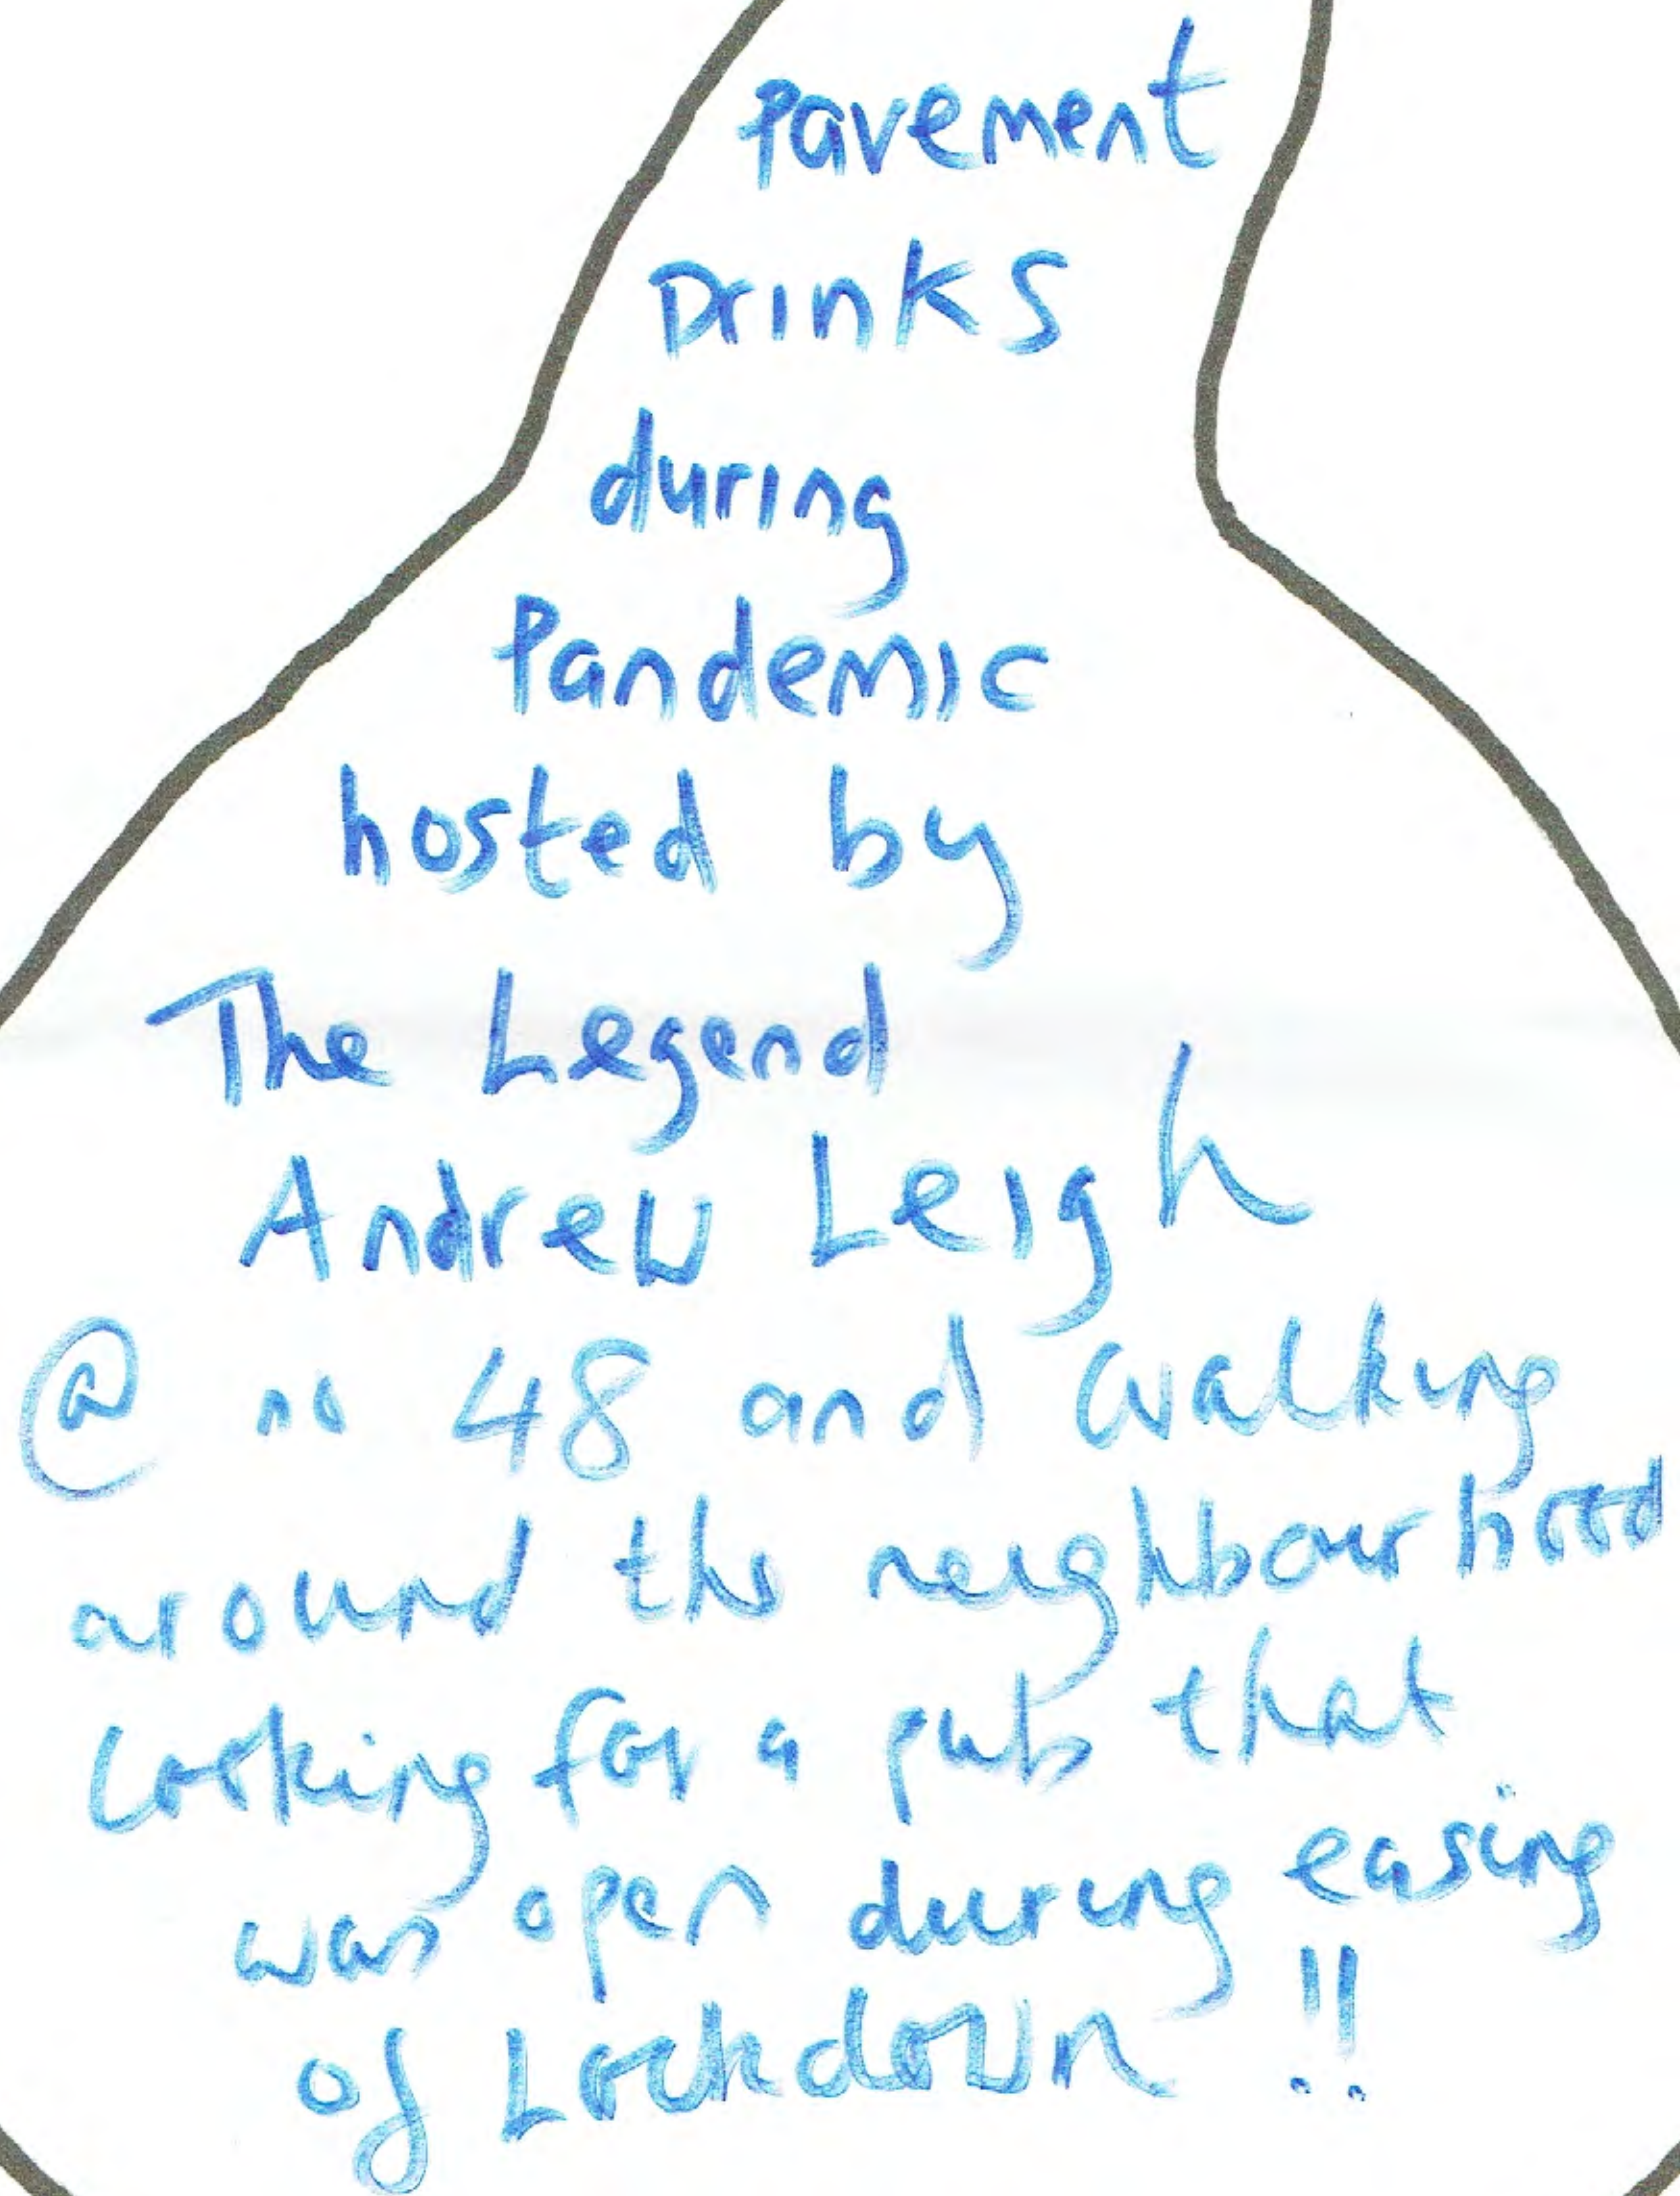 Pavement
Drinks
during
Pandemic
hosted by
The Legend
Andrew Leigh
@ no 48 and walking
around the neighbourhood
looking for a pub that
was open during easing
of Lockdown !!